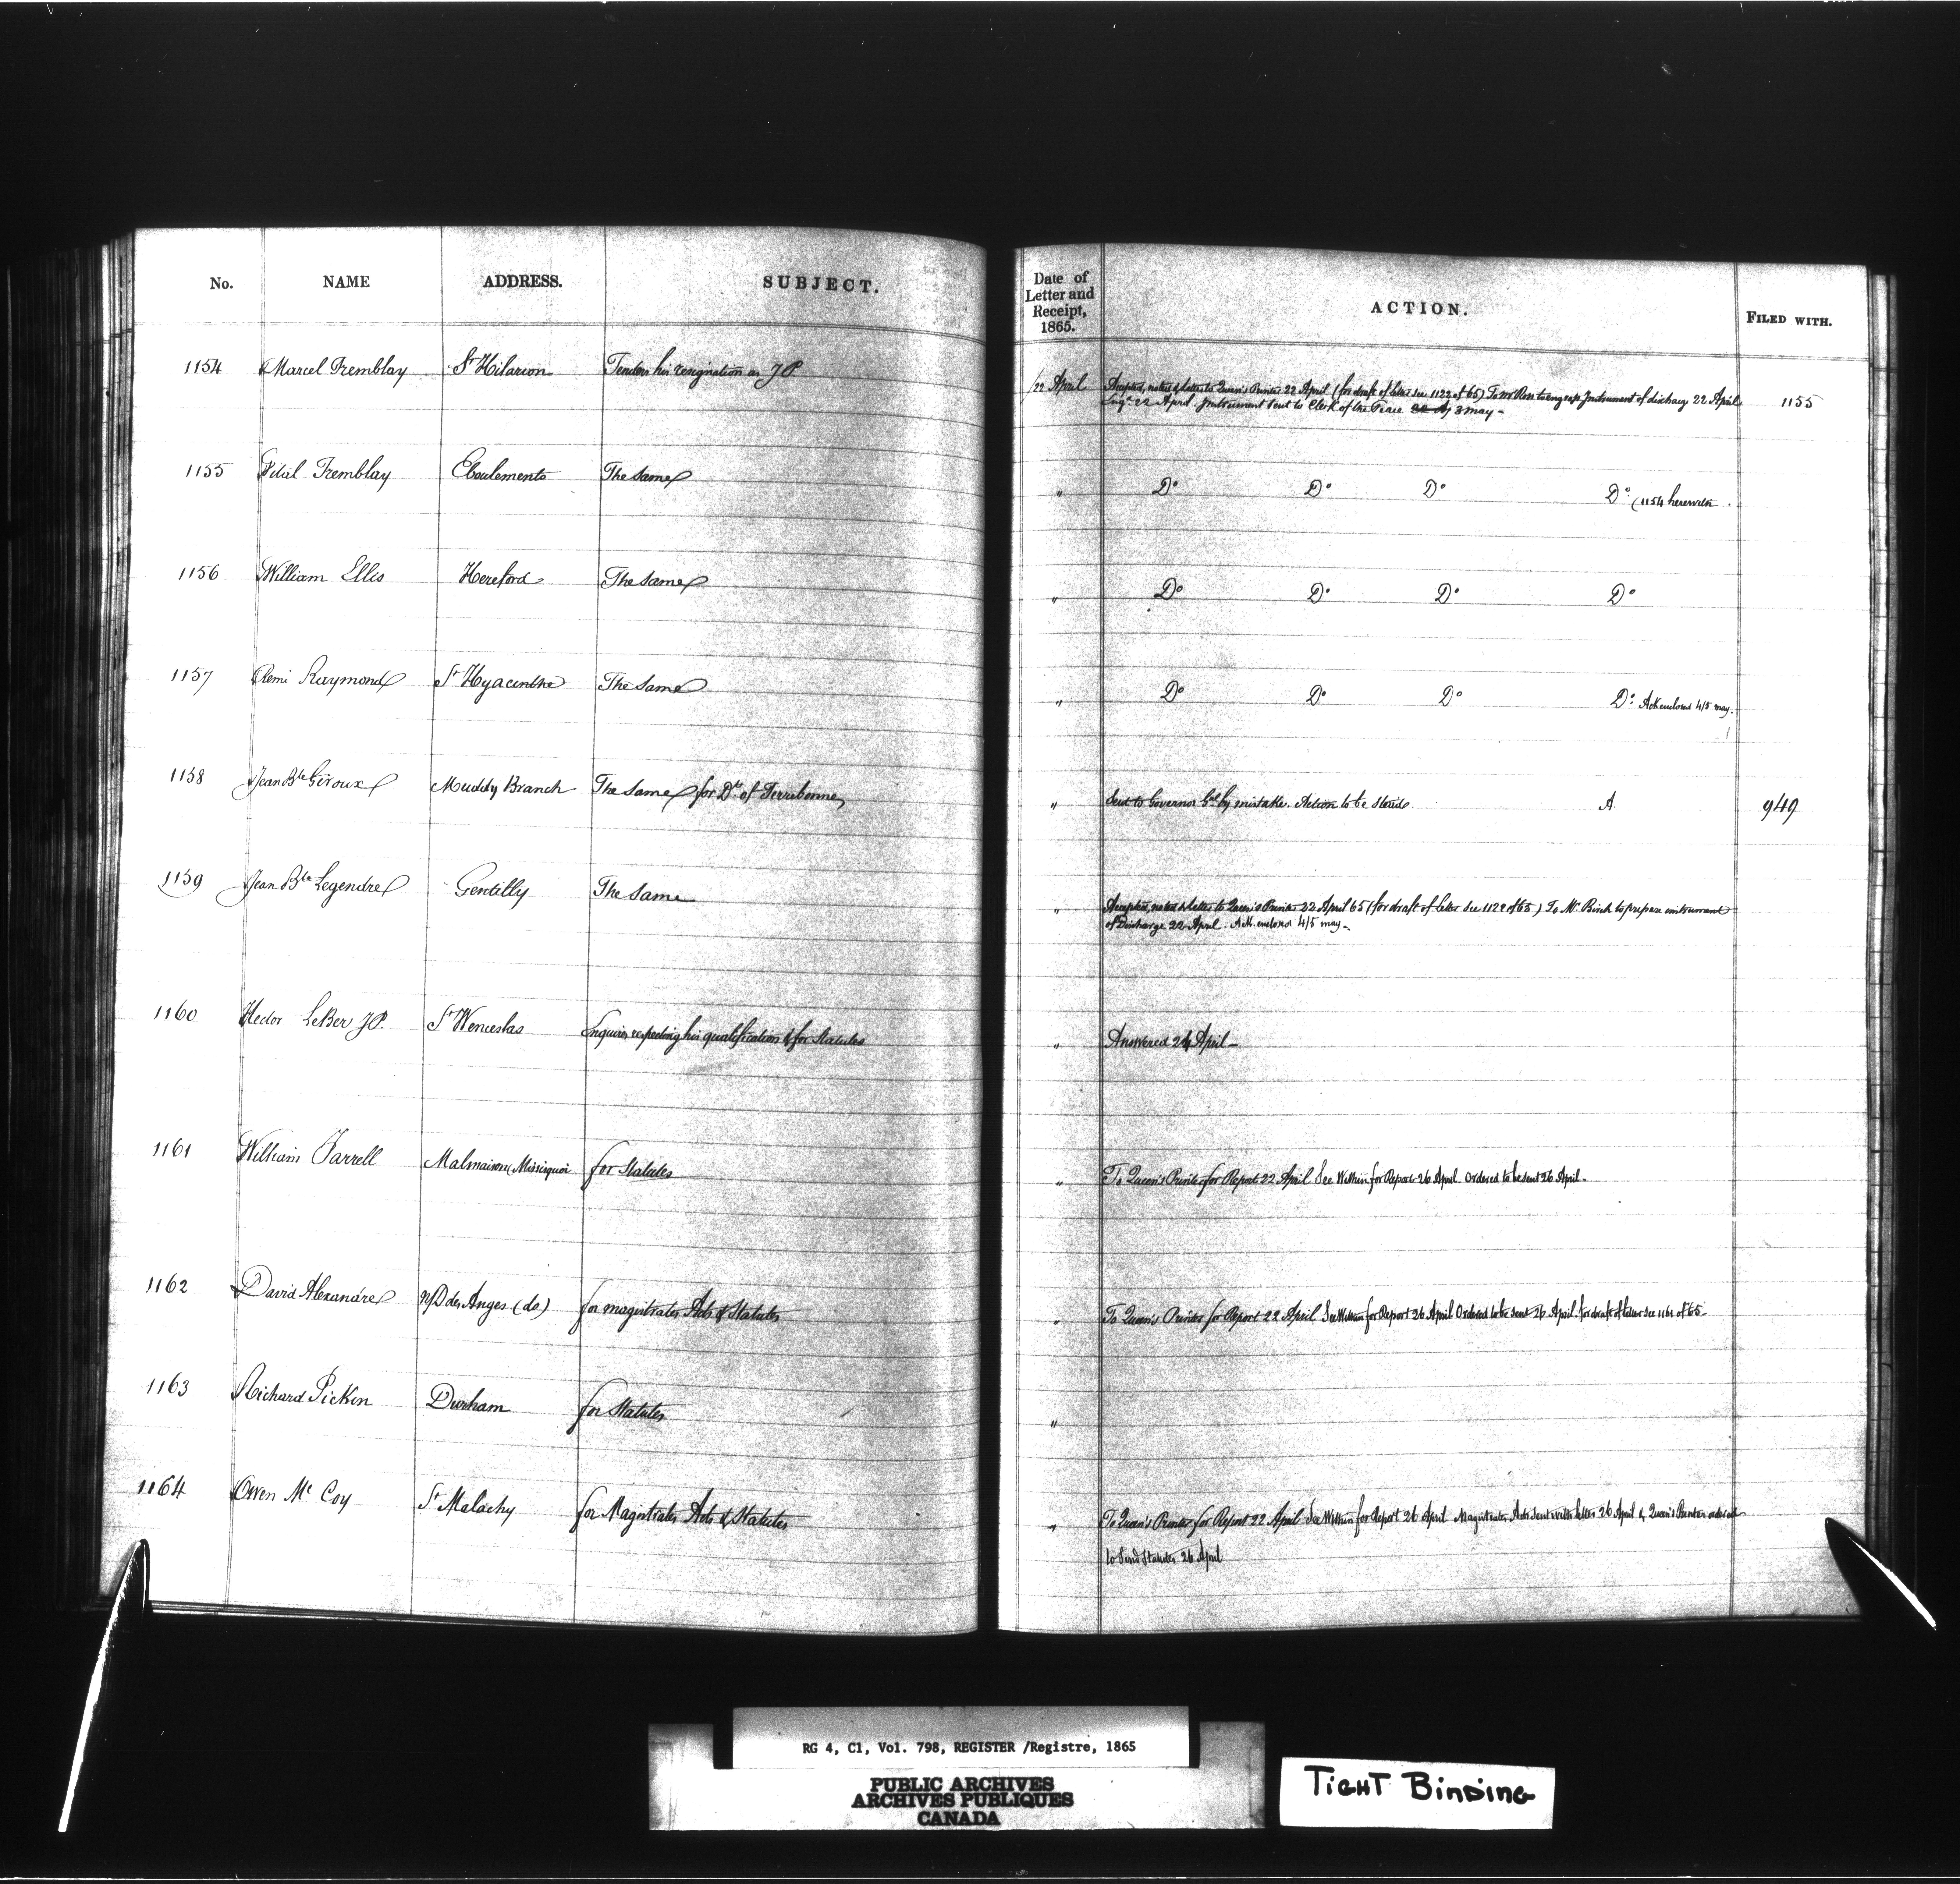 No. NAME ADDRESS. SUBJECT. Date of Letter and Receipt, 1865. ACTION. FILED WITH.
1154 Marcel Tremblay St Hilarion Tenders his resignation as JP 22 April Accepted, noted & letter to Queen's Printer 22 April (for draft of letter see 1122 of 65) To Mr Ross to engross Instrument of discharge 22 April 1155
Engd 22 April. Instrument sent to Clerk of the Peace 3 May -
1155 Vital Tremblay Eboulements The same " Do Do Do Do (1154 herewith
1156 William Ellis Hereford The same " Do Do Do Do
1157 Remi Raymond St Hyacinthe The same " Do Do Do Do Ack enclosed 4/5 may.
1158 Jean Bte Giroux Muddy Branch The same for Dt of Terrebonne " Sent to Governor Gel by mistake. Action to be stayed. A 949
1159 Jean Bte Legendre Gentilly The same " Accepted, noted & letter to Queen's Printer 22 April 65 (for draft of letter see 1122 of 65) To Mr Birch to prepare instrument
of Discharge 22 April. Ack. enclosed 4/5 may -
1160 Hector LeBer JP. St Wenceslas Enquires respecting his qualification & for Statutes " Answered 24 April -
1161 William Farrell Malmaison (Missisquoi for Statutes " To Queen's Printer for Report 22 April See Within for Report 26 April. Ordered to be sent 26 April.
1162 David Alexandre N/D des Anges (do) for magistrates Acts & Statutes " To Queen's Printer for Report 22 April See Within for Report 26 April Ordered to be sent 26 April. for draft of letter see 1161 of 65
1163 Richard Pickin Durham for Statutes "
1164 Owen Mc Coy St Malachy for Magistrates Acts & Statutes " To Queen's Printer for Report 22 April See Within for Report 26 April Magistrates Acts sent with letter 26 April & Queen's Printer ordered
to send Statutes 26 April
RG 4, C1, Vol. 798, REGISTER /Registre, 1865
PUBLIC ARCHIVES
ARCHIVES PUBLIQUES
CANADA
TIGHT BINDING